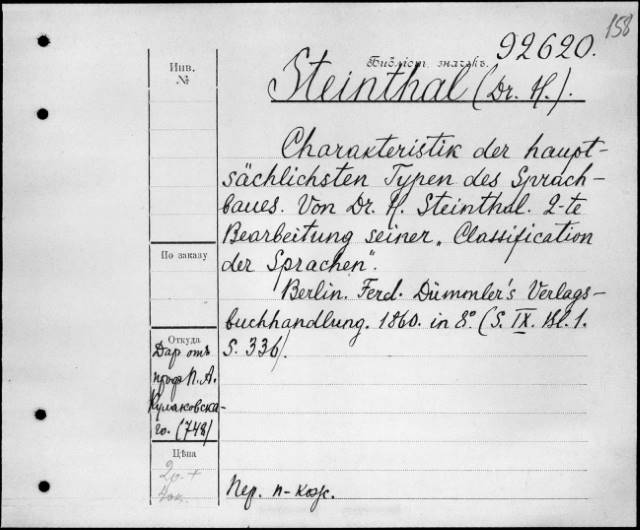 158
92620.
Библіот. значекъ.
Steinthal (Dr. H.).
Инв.
№
Charakteristik der haupt-
sächlichsten Typen des Sprach-
baues. Von Dr. H. Steinthal. 2-te
Bearbeitung seiner „Classification
der Sprachen".
Berlin. Ferd. Dümmler's Verlags-
buchhandlung. 1860. in 8° (S. IX. Bl. 1.
S. 336).
По заказу
Откуда
Даръ отъ
проф. П. А.
Кулаковска-
го. (748)
Цѣна
2р. +
40к.
Пер. п-кож.